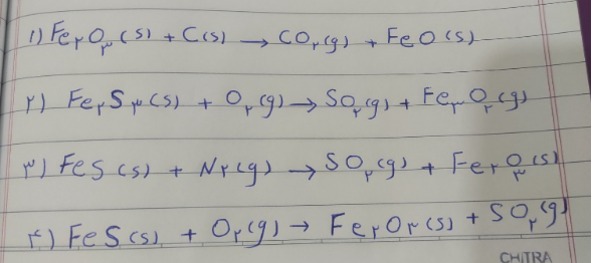 ۱) Fe۲O۳(s) + C(s) → CO۲(g) + FeO(s)
۲) Fe۲S۳(s) + O۲(g) → SO۲(g) + Fe۳O۲(g)
۳) FeS(s) + N۲(g) → SO۲(g) + Fe۲O۳(s)
۴) FeS(s) + O۲(g) → Fe۲O۳(s) + SO۲(g)
CHiTRA